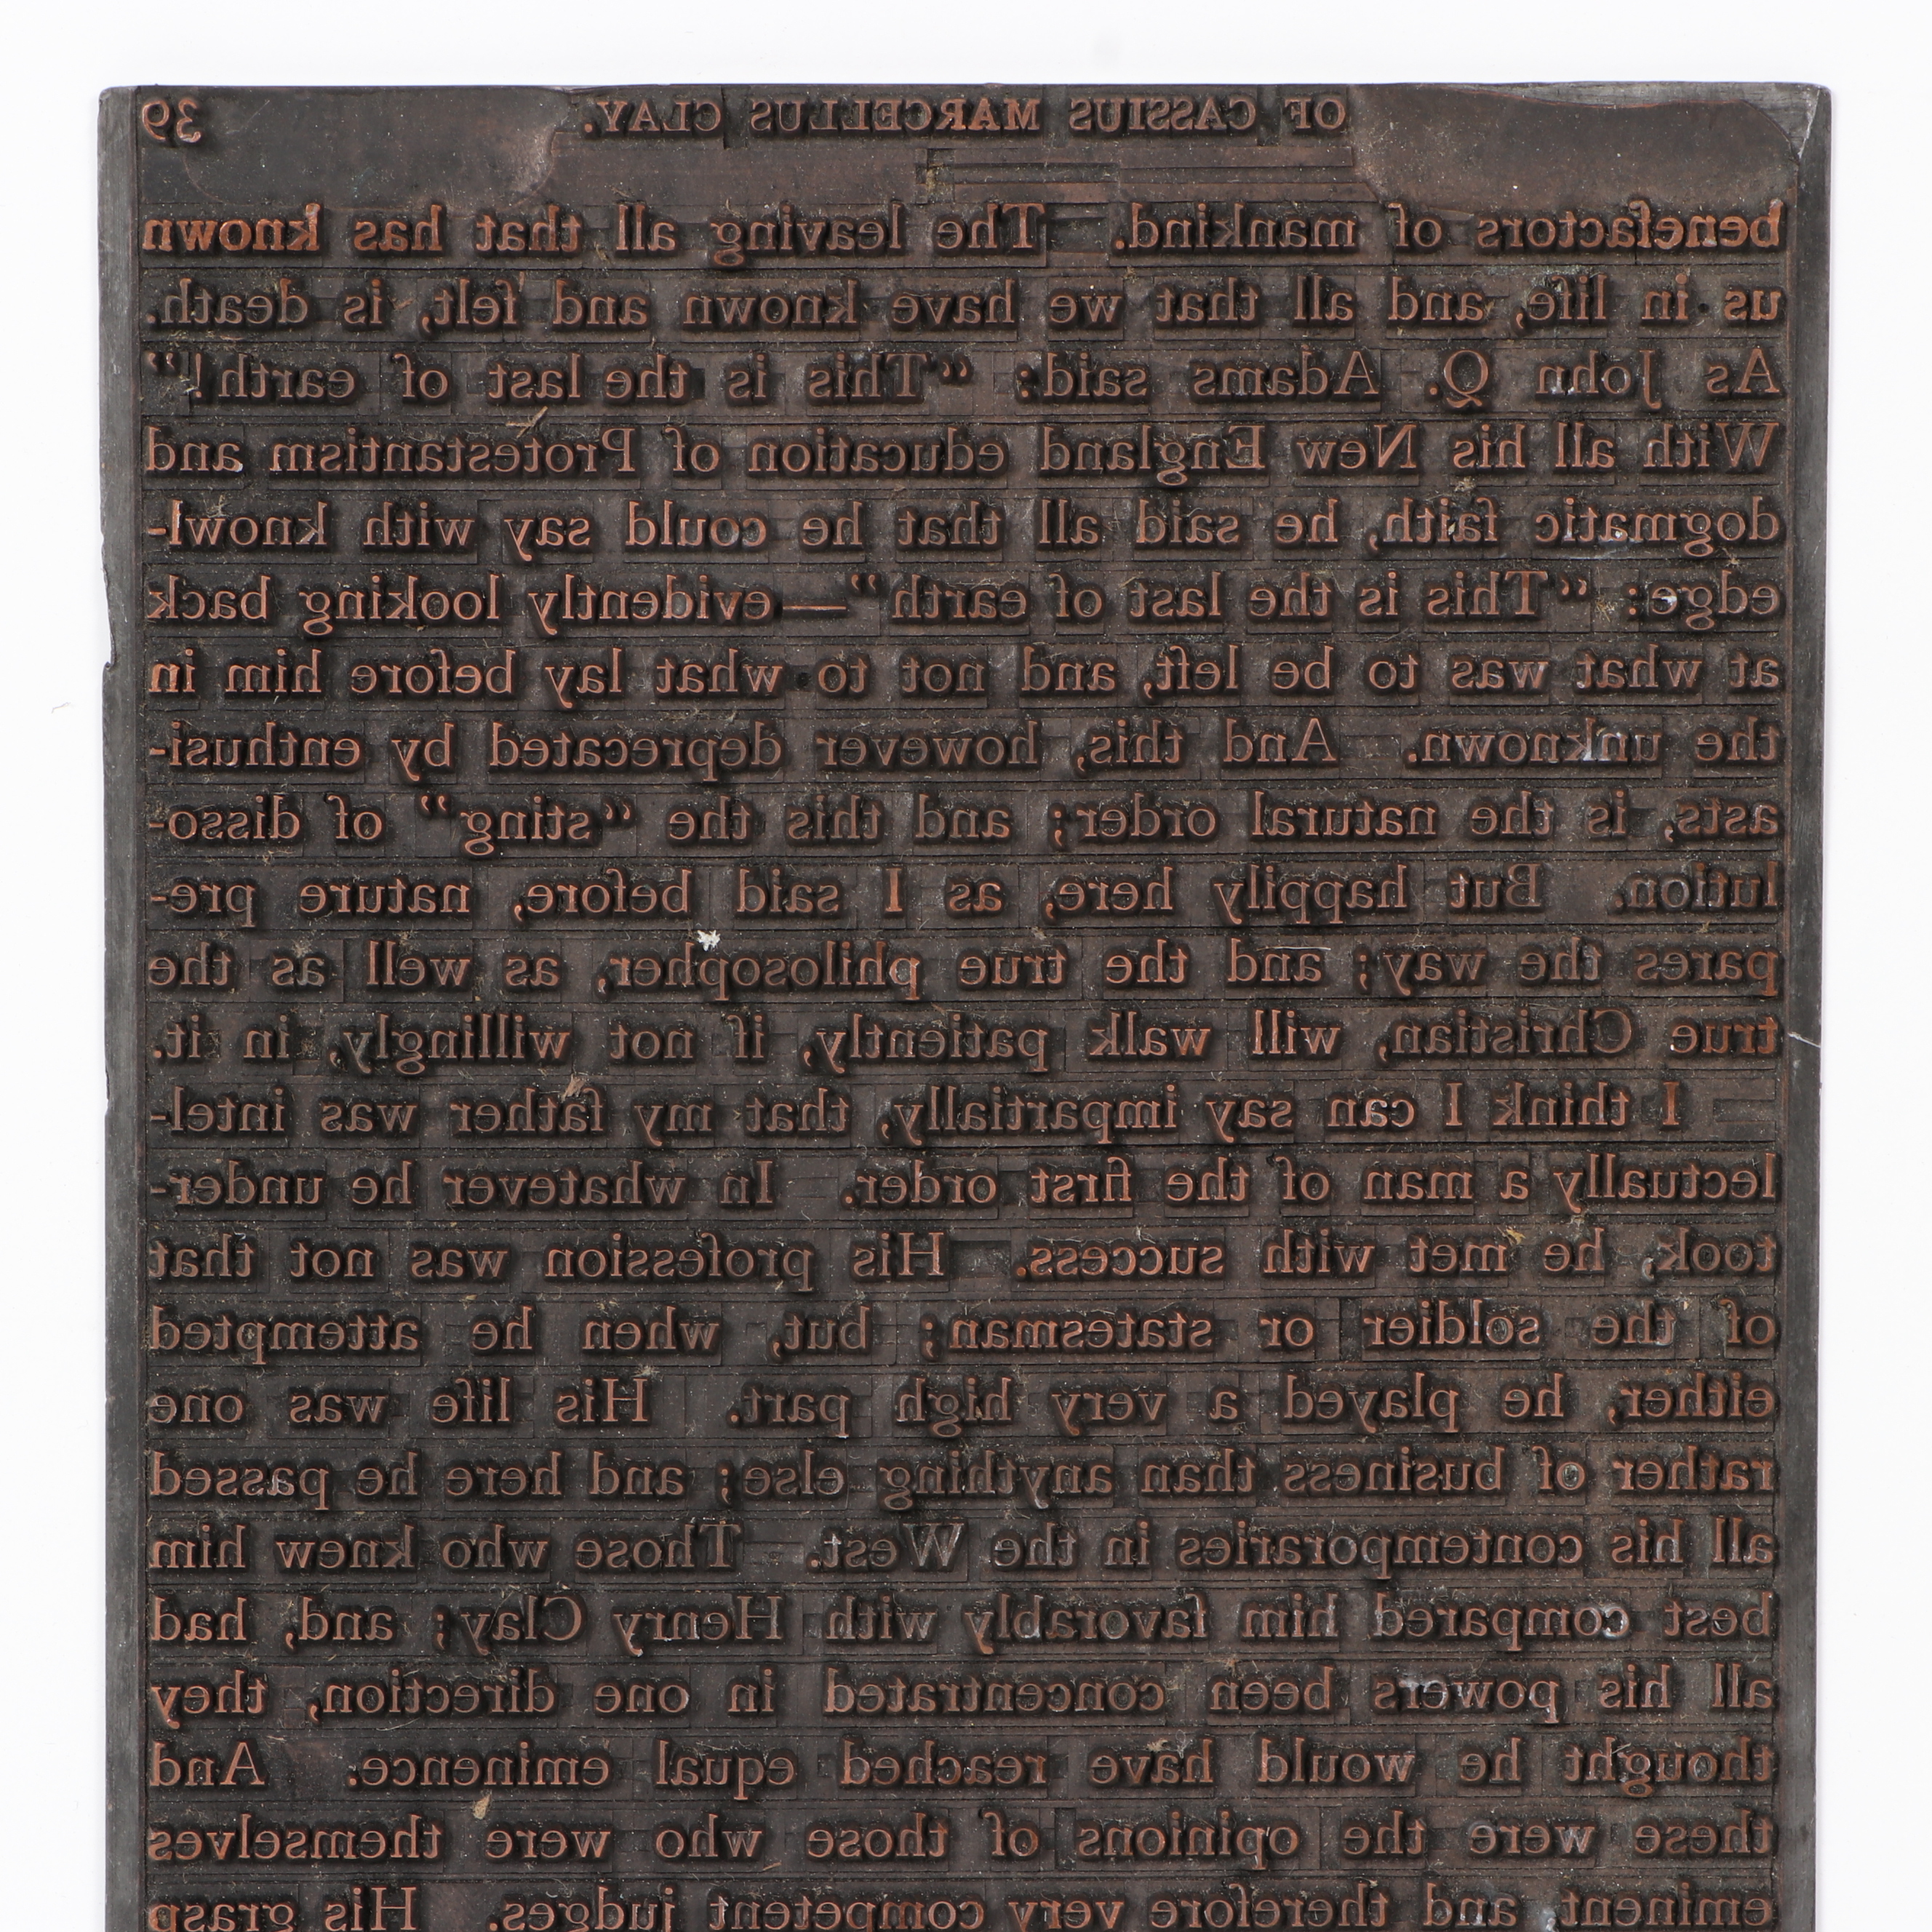 OF CASSIUS MARCELLUS CLAY. 39
benefactors of mankind. The leaving all that has known
us in life, and all that we have known and felt, is death.
As John Q. Adams said: “This is the last of earth!”
With all his New England education of Protestantism and
dogmatic faith, he said all that he could say with knowl-
edge: “This is the last of earth”—evidently looking back
at what was to be left, and not to what lay before him in
the unknown. And this, however deprecated by enthusi-
asts, is the natural order; and this the “sting” of disso-
lution. But happily here, as I said before, nature pre-
pares the way; and the true philosopher, as well as the
true Christian, will walk patiently, if not willingly, in it.
I think I can say impartially, that my father was intel-
lectually a man of the first order. In whatever he under-
took, he met with success. His profession was not that
of the soldier or statesman; but, when he attempted
either, he played a very high part. His life was one
rather of business than anything else; and here he passed
all his contemporaries in the West. Those who knew him
best compared him favorably with Henry Clay; and, had
all his powers been concentrated in one direction, they
thought he would have reached equal eminence. And
these were the opinions of those who were themselves
eminent and therefore very competent judges. His grasp